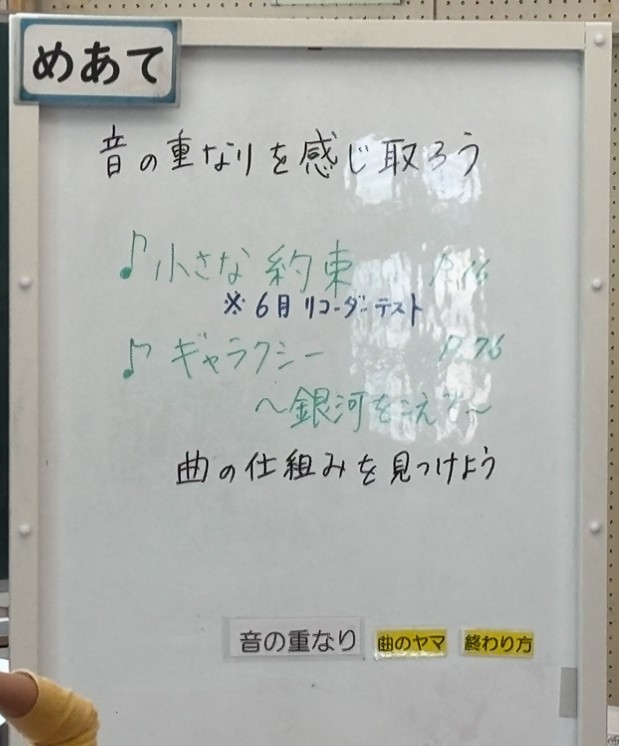 めあて
音の重なりを感じ取ろう
♪小さな約束
※6月リコーダーテスト
♪ギャラクシー P.76
〜銀河をこえて〜
曲の仕組みを見つけよう
音の重なり 曲のヤマ 終わり方